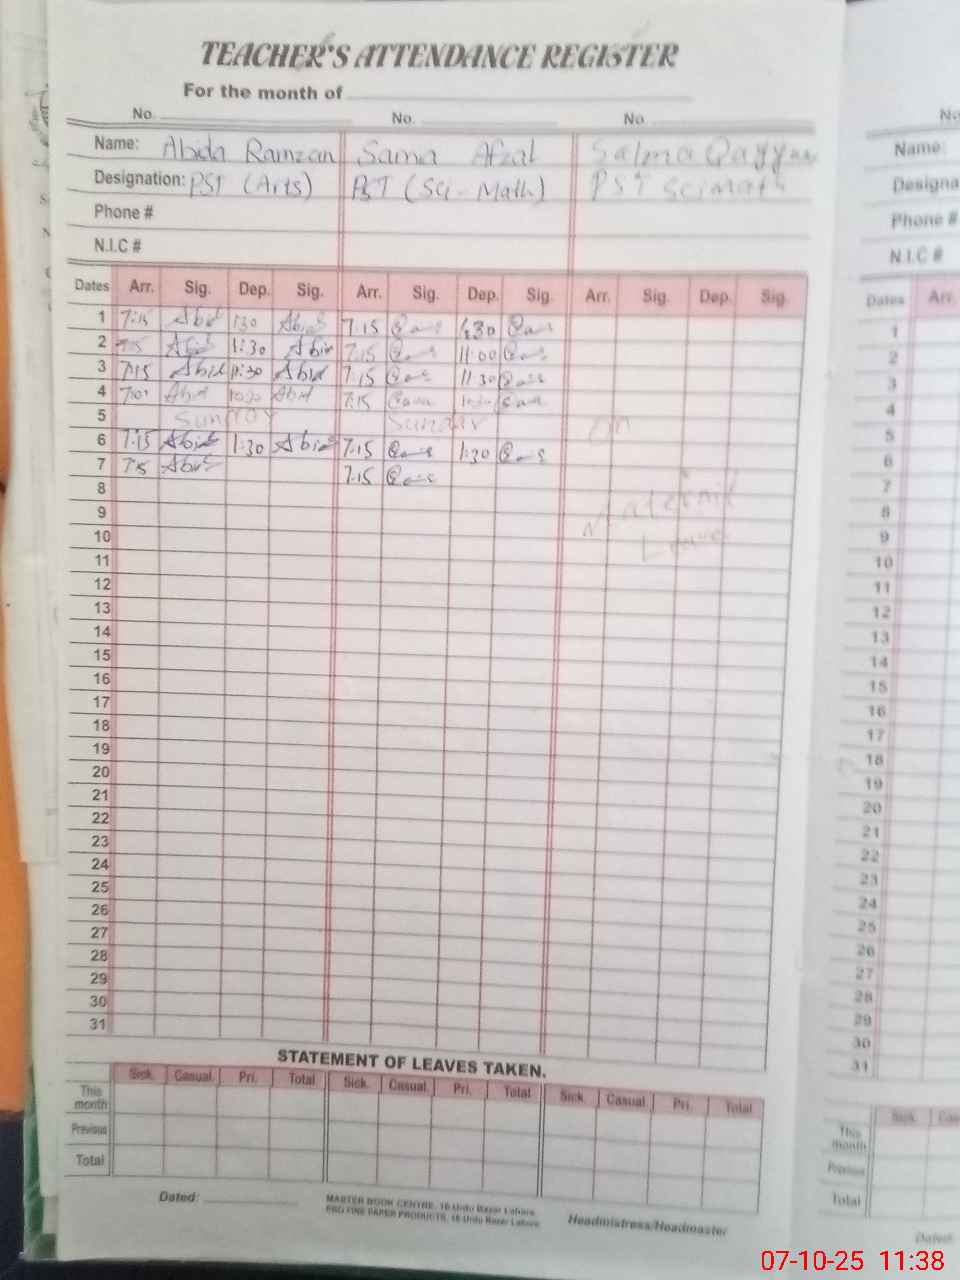 TEACHER'S ATTENDANCE REGISTER
For the month of
No. No. No.
Name: Abida Ramzan Sama Afzal Salma Qayyum
Designation: PST (Arts) PST (Sci-Math) PST Sci Math
Phone #
N.I.C #
Dates Arr. Sig. Dep. Sig. Arr. Sig. Dep. Sig. Arr. Sig. Dep. Sig.
1 7:15 Abid 1:30 Abid 7.15 1:30
2 7:15 Abid 11:30 Abid 7.15 11:00
3 7:15 Abid 11:30 Abid 7.15 11:30
4 Abid Abid 7.15
5 Sunday Sunday On
6 7:15 Abid 1:30 Abid 7.15 1:30
7 7:15 Abid 7.15
8 Maternit
9
10 Leave
11
12
13
14
15
16
17
18
19
20
21
22
23
24
25
26
27
28
29
30
31
STATEMENT OF LEAVES TAKEN.
Sick. Casual. Pri. Total Sick. Casual. Pri. Total Sick. Casual Pri. Total
This month
Previous
Total
Dated:
MASTER BOOK CENTRE, 16 Urdu Bazar Lahore.
PRO FINE PAPER PRODUCTS, 16 Urdu Bazar Lahore.
Headmistress/Headmaster
No
Name:
Designa
Phone #
N.I.C #
Dates Arr.
1
2
3
4
5
6
7
8
9
10
11
12
13
14
15
16
17
18
19
20
21
22
23
24
25
26
27
28
29
30
31
Sick. Cas
This month
Previous
Total
Dated:
07-10-25 11:38